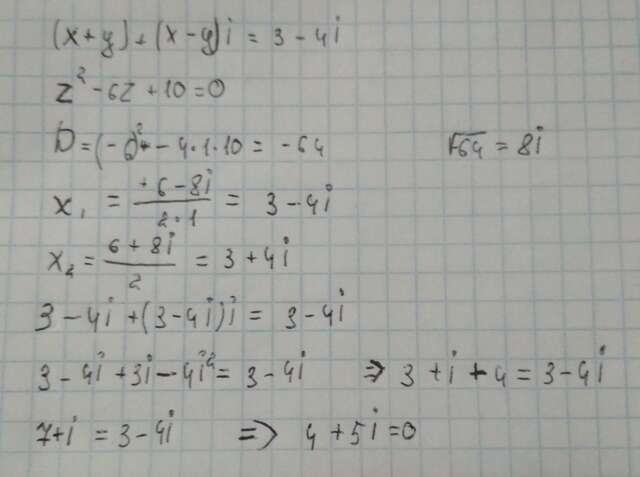 (x+y)+(x-y)i = 3-4i
z²-6z+10=0
D=(-6)²-4·1·10=-64 √-64=8i
x₁ = +6-8i/2·1 = 3-4i
x₂ = 6+8i/2 = 3+4i
3-4i+(3-4i)i = 3-4i
3-4i+3i-4i²=3-4i => 3+i+4=3-4i
7+i=3-4i => 4+5i=0